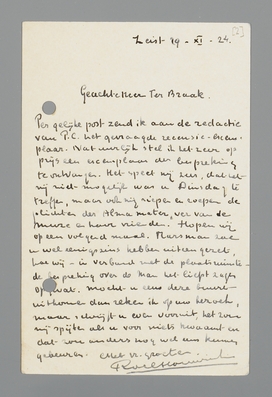 Zeist 19 - XI - 24.
Geachte Heer Ter Braak.
Per gelijke post zend ik aan de redactie
van P.C. het gevraagde recensie-exem-
plaar. Natuurlijk stel ik het zeer op
prijs een exemplaar der bespreking
te ontvangen. Het speet mij zeer, dat het
mij niet mogelijk was u Dinsdag te
treffen, maar ook mij riepen en roepen de
plichten der Alma mater, ver van de
muze en haar vrienden. Hopen wij
op een volgend maal. Marsman zal
u wel eenigszins hebben uiteengezet,
hoe wij - in verband met de plaatsruimte -
de bespreking over de
opvat. Mocht u eens deze buurt
uitkomen dan reken ik op uw bezoek,
maar schrijft u even vooruit, het zou
mij spijten als u voor niets kwaamt en
dat zou anders nog wel eens kunnen
gebeuren. Met vr. groeten